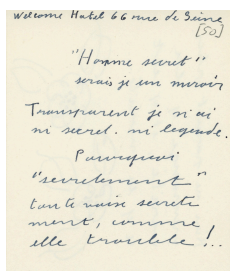 Welcome Hotel 66 rue de Seine
[50]
"Homme secret"
serais je un miroir
Transparent je n'ai
ni secret. ni legende.
Pourquoi
"secretement"
toute secrete
ment, comme
elle trouble !..